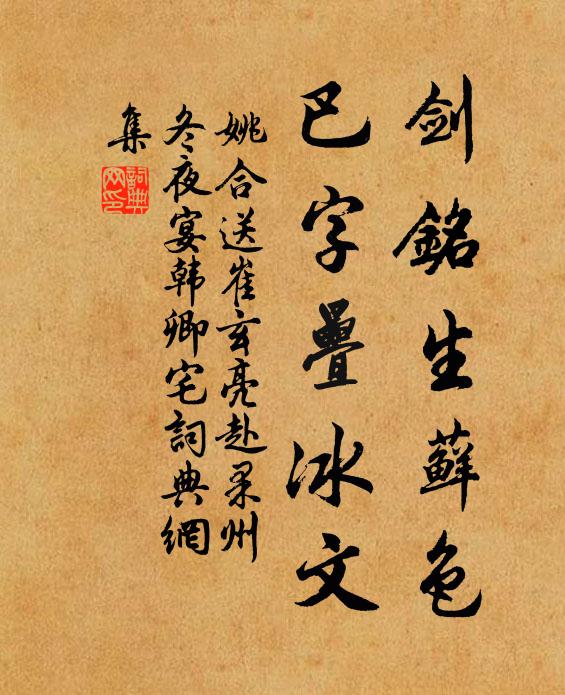 剑銘生蘚色
巴字疊冰文
姚合送崔玄亮赴果州
冬夜宴韩卿宅詞典網
集
詞典
网印